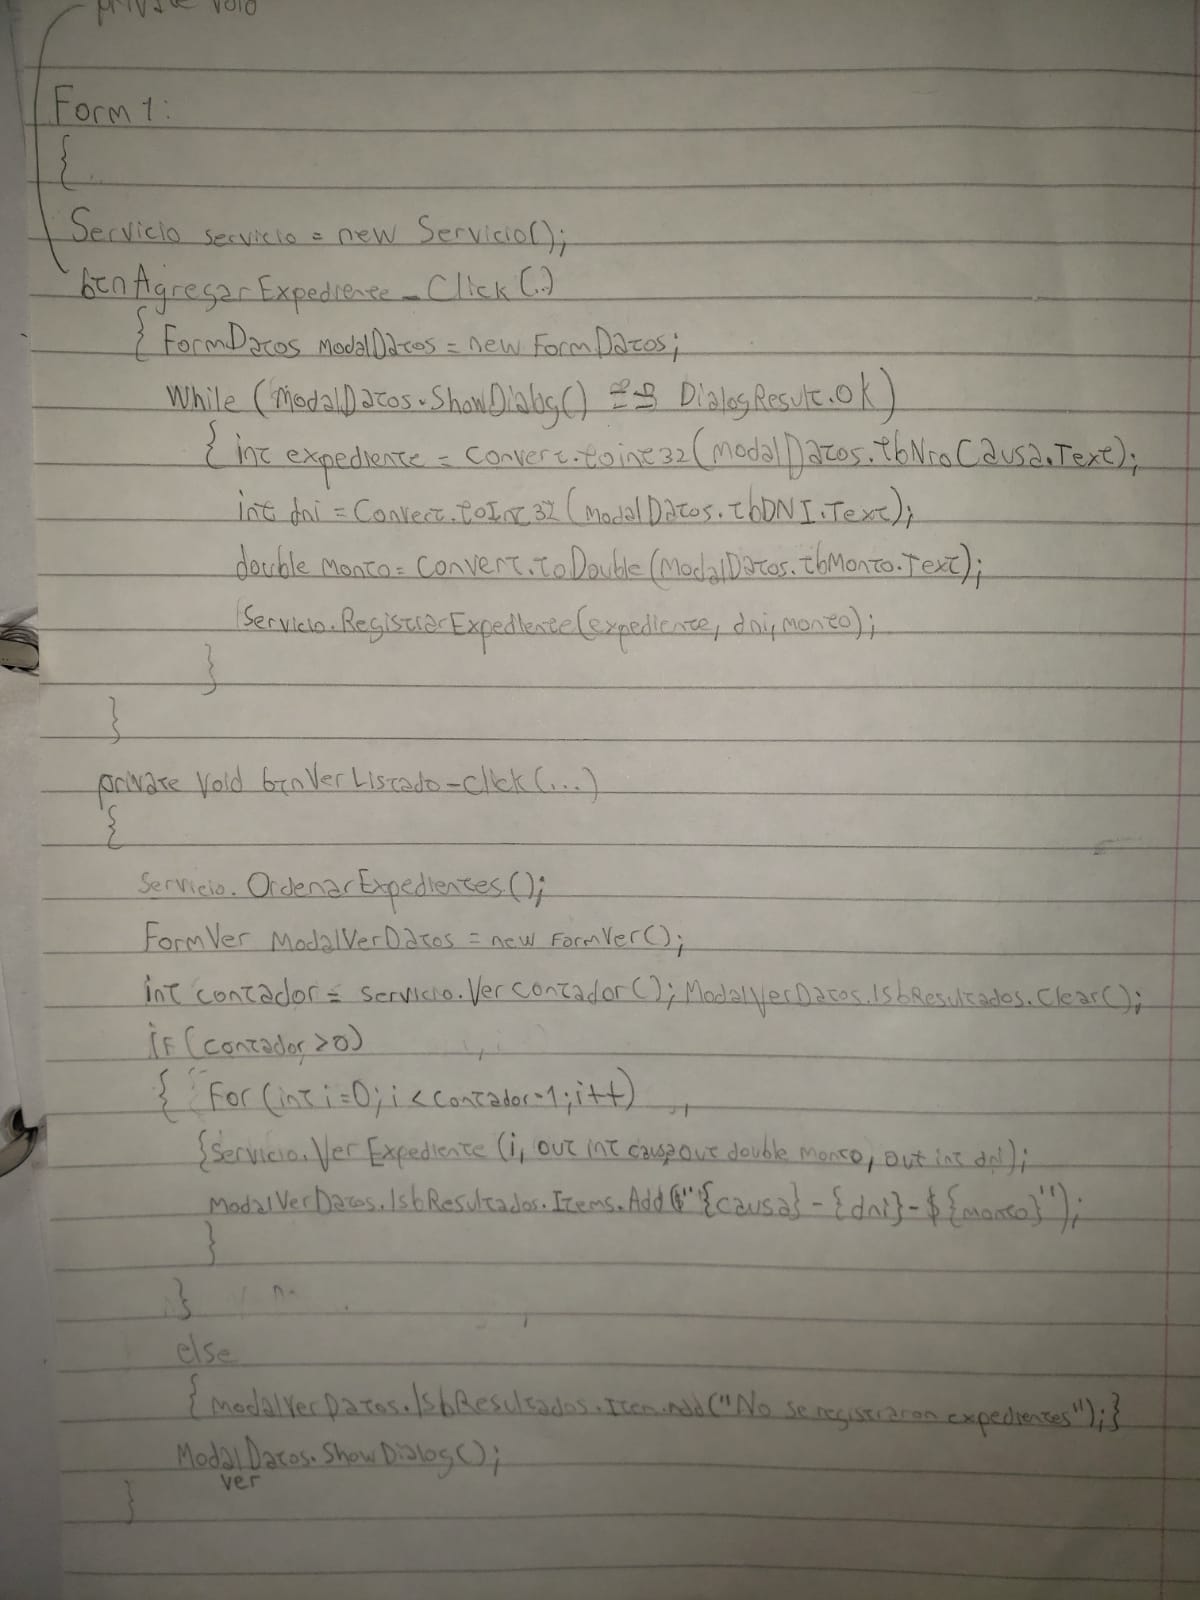 private void
Form 1:
{
Servicio servicio = new Servicio();
btnAgregarExpediente_Click(..)
{ FormDatos ModalDatos = new FormDatos;
While (ModalDatos.ShowDialog() == DialogResult.OK)
{ int expediente = Convert.toint32(ModalDatos.tbNroCausa.Text);
int dni = Convert.toInt32(ModalDatos.tbDNI.Text);
double Monto = Convert.toDouble(ModalDatos.tbMonto.Text);
Servicio.RegistrarExpediente(expediente, dni, monto);
}
}
private void btnVerListado-Click(...)
{
Servicio.OrdenarExpedientes();
FormVer ModalVerDatos = new FormVer();
int contador = servicio.Vercontador(); ModalVerDatos.lsbResultados.Clear();
if (contador >0)
{ For (int i=0; i < contador-1; i++)
{Servicio.VerExpediente (i, out int causa, out double monto, out int dni);
ModalVerDatos.lsbResultados.Items.Add($"{causa}-{dni}-${monto}");
}
}
else
{ modalVerDatos.lsbResultados.Item.Add("No se registraron expedientes");}
ModalDatos.ShowDialog();
ver
}